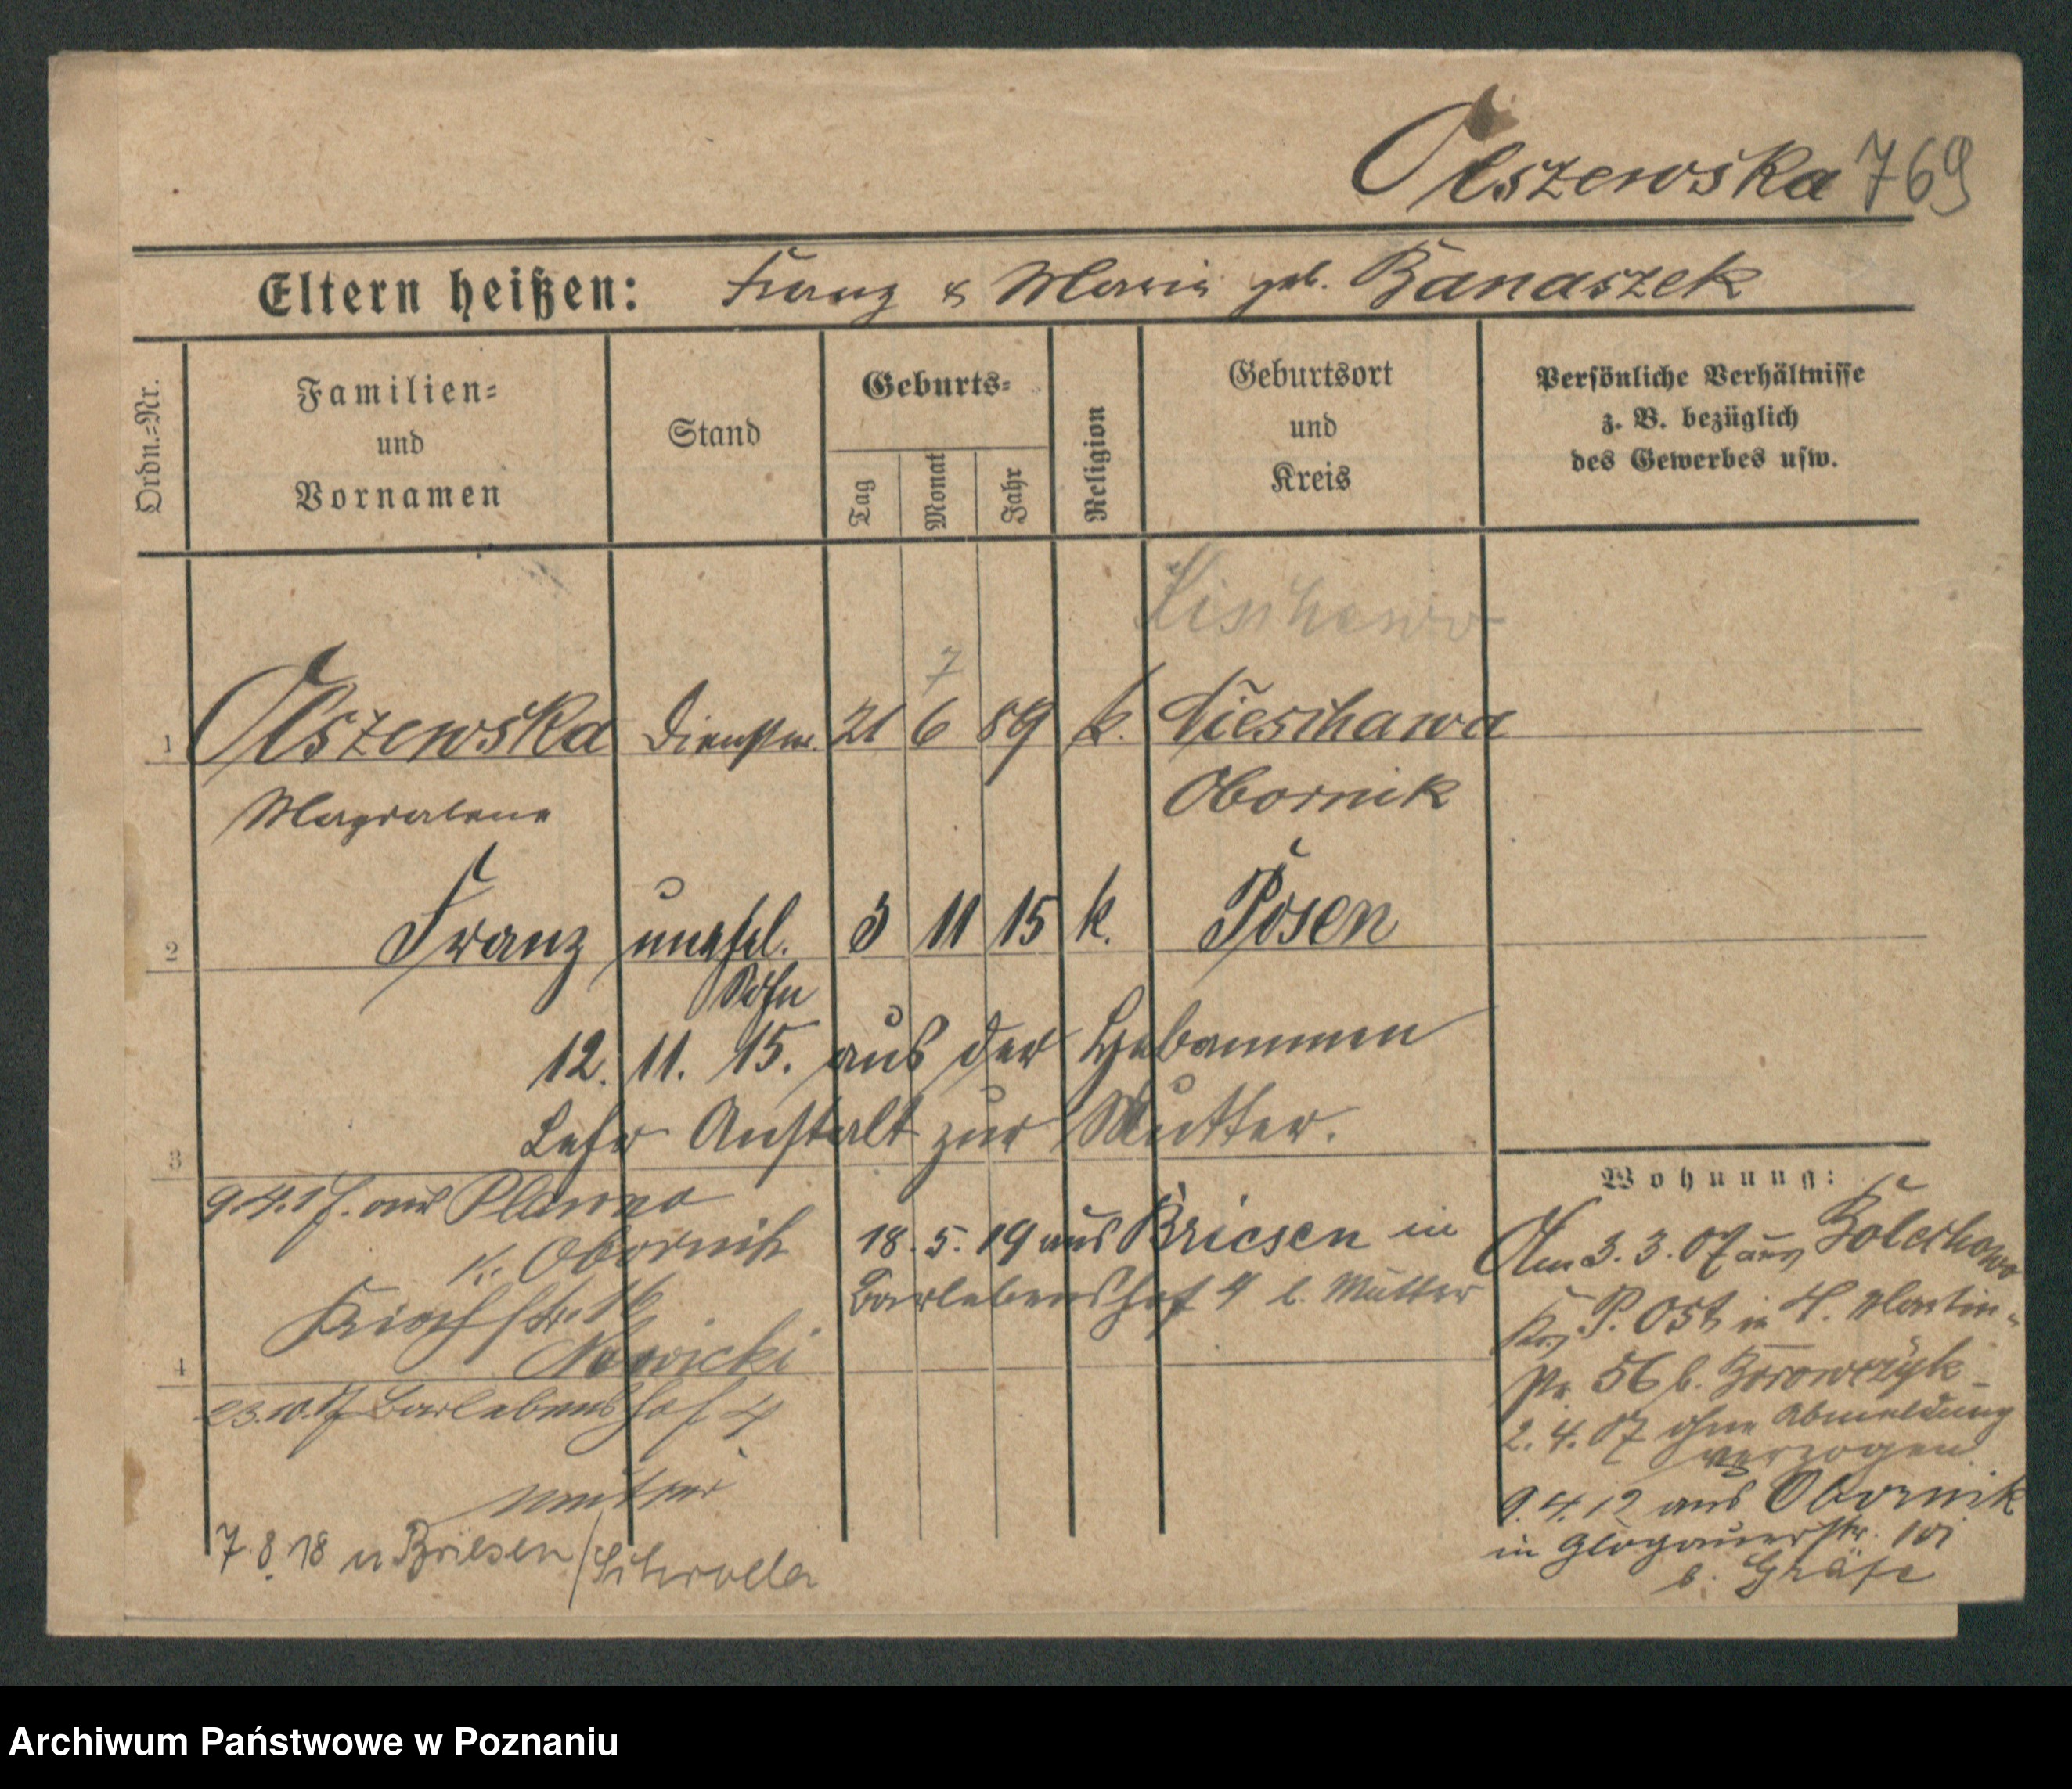 Olszewska 769
Eltern heißen: Franz & Maria geb. Banaszek
Ordn.=Nr.
Familien=
und
Vornamen
Stand
Geburts=
Tag
Monat
Jahr
Religion
Geburtsort
und
Kreis
Persönliche Verhältnisse
z. B. bezüglich
des Gewerbes usw.
7
1 Olszewska Dienstm. 21 6 89 k.
Magdalena
Obornik
2 Franz unehel. 3 11 15 k. Posen
Sohn
12. 11. 15. aus der Hebammen
Lehr Anstalt zur Mutter.
3
9.4.17. aus
K. Obornik
Kirchstr.
Nowicki
4
18. 5. 19 aus Briesen in
Barlebenshof 4 b. Mutter
Barlebenshof 4
Mutter
7. 8. 18 n Briesen
Wohnung:
Am 3. 3. 07 aus
P. Ost in St. Martin=
56 b.
2. 4. 07 ohne Abmeldung
verzogen.
9. 4. 12 aus Obornik
in Glogauerstr. 101
b. Gräfe
Archiwum Państwowe w Poznaniu